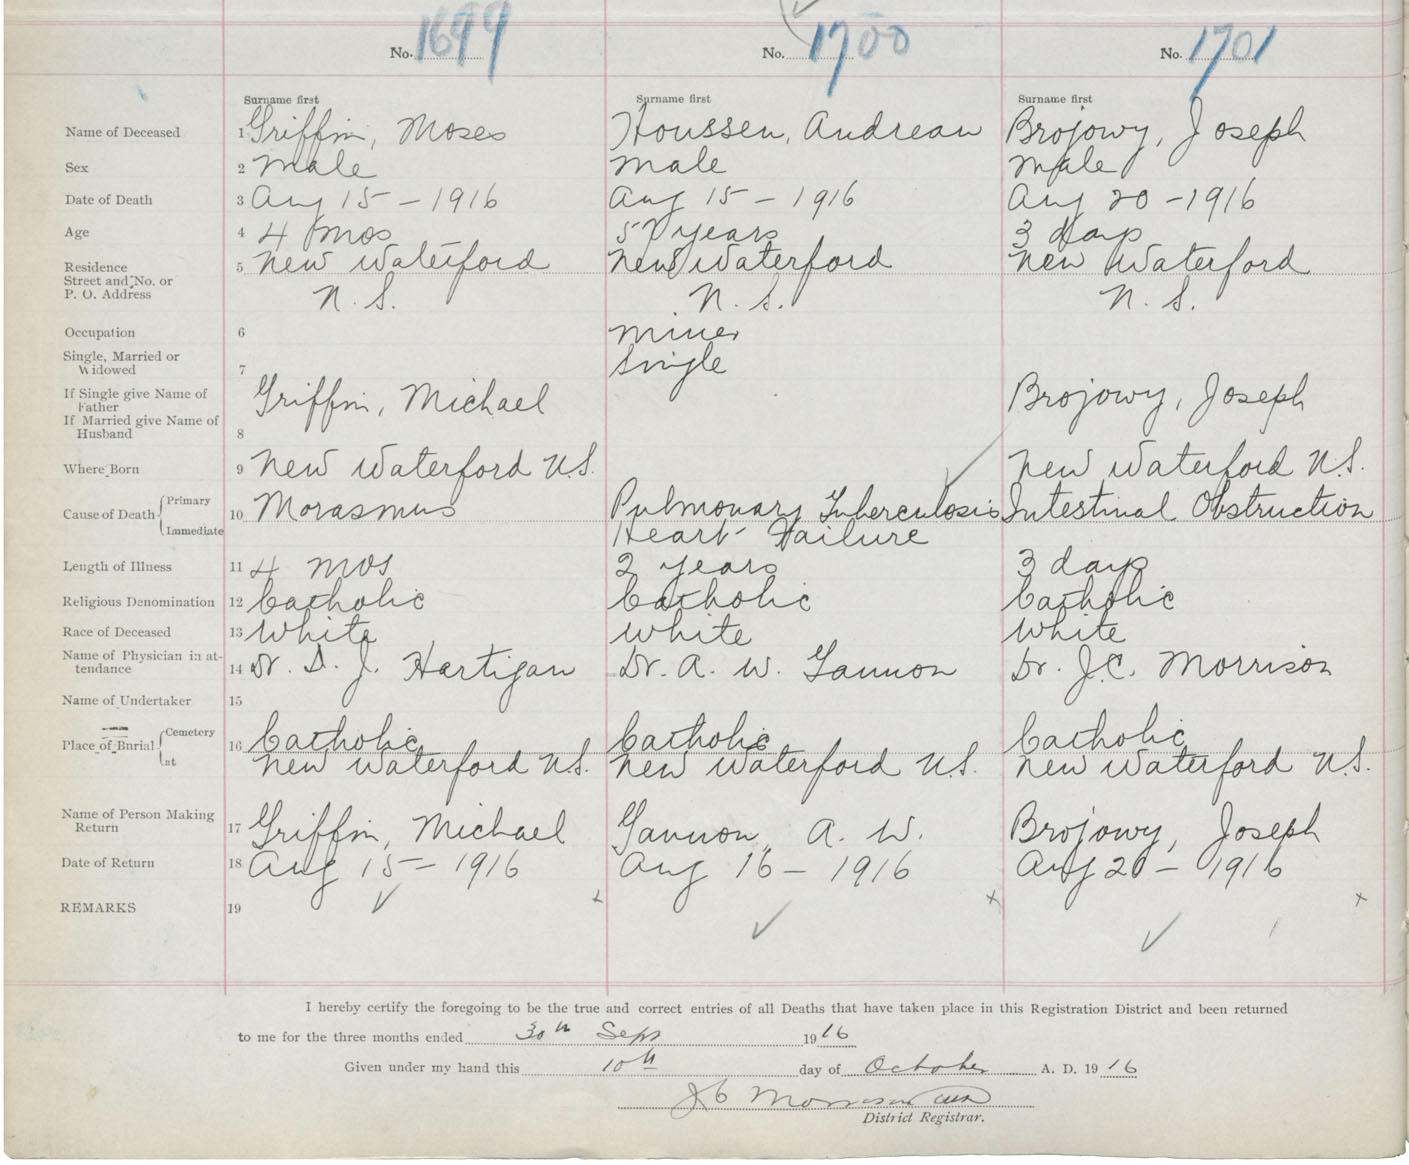 No. 1699 No. 1700 No. 1701
Surname first Surname first Surname first
Name of Deceased 1 Griffin, Moses Houssen, Andrean Brojowy, Joseph
Sex 2 Male Male Male
Date of Death 3 Aug 15 - 1916 Aug 15 - 1916 Aug 20 - 1916
Age 4 4 mos 57 years 3 days
Residence
Street and No. or 5 New Waterford New Waterford New Waterford
P. O. Address N. S. N. S. N. S.
Occupation 6 Miner
Single, Married or
Widowed 7 Single
If Single give Name of
Father Griffin, Michael Brojowy, Joseph
If Married give Name of
Husband 8
Where Born 9 New Waterford N.S. New Waterford N.S.
Cause of Death Primary 10 Morasmus Pulmonary Tuberculosis Intestinal Obstruction
Immediate Heart Failure
Length of Illness 11 4 mos 2 years 3 days
Religious Denomination 12 Catholic Catholic Catholic
Race of Deceased 13 White White White
Name of Physician in at-
tendance 14 Dr. D. J. Hartigan Dr. A. W. Gannon Dr. J.C. Morrison
Name of Undertaker 15
Place of Burial Cemetery 16 Catholic Catholic Catholic
at New Waterford N.S. New Waterford N.S. New Waterford N.S.
Name of Person Making
Return 17 Griffin, Michael Gannon, A. W. Brojowy, Joseph
Date of Return 18 Aug 15 - 1916 Aug 16 - 1916 Aug 20 - 1916
REMARKS 19
I hereby certify the foregoing to be the true and correct entries of all Deaths that have taken place in this Registration District and been returned
to me for the three months ended 30th Sept 1916
Given under my hand this 10th day of October A. D. 1916
J C Morrison
District Registrar.